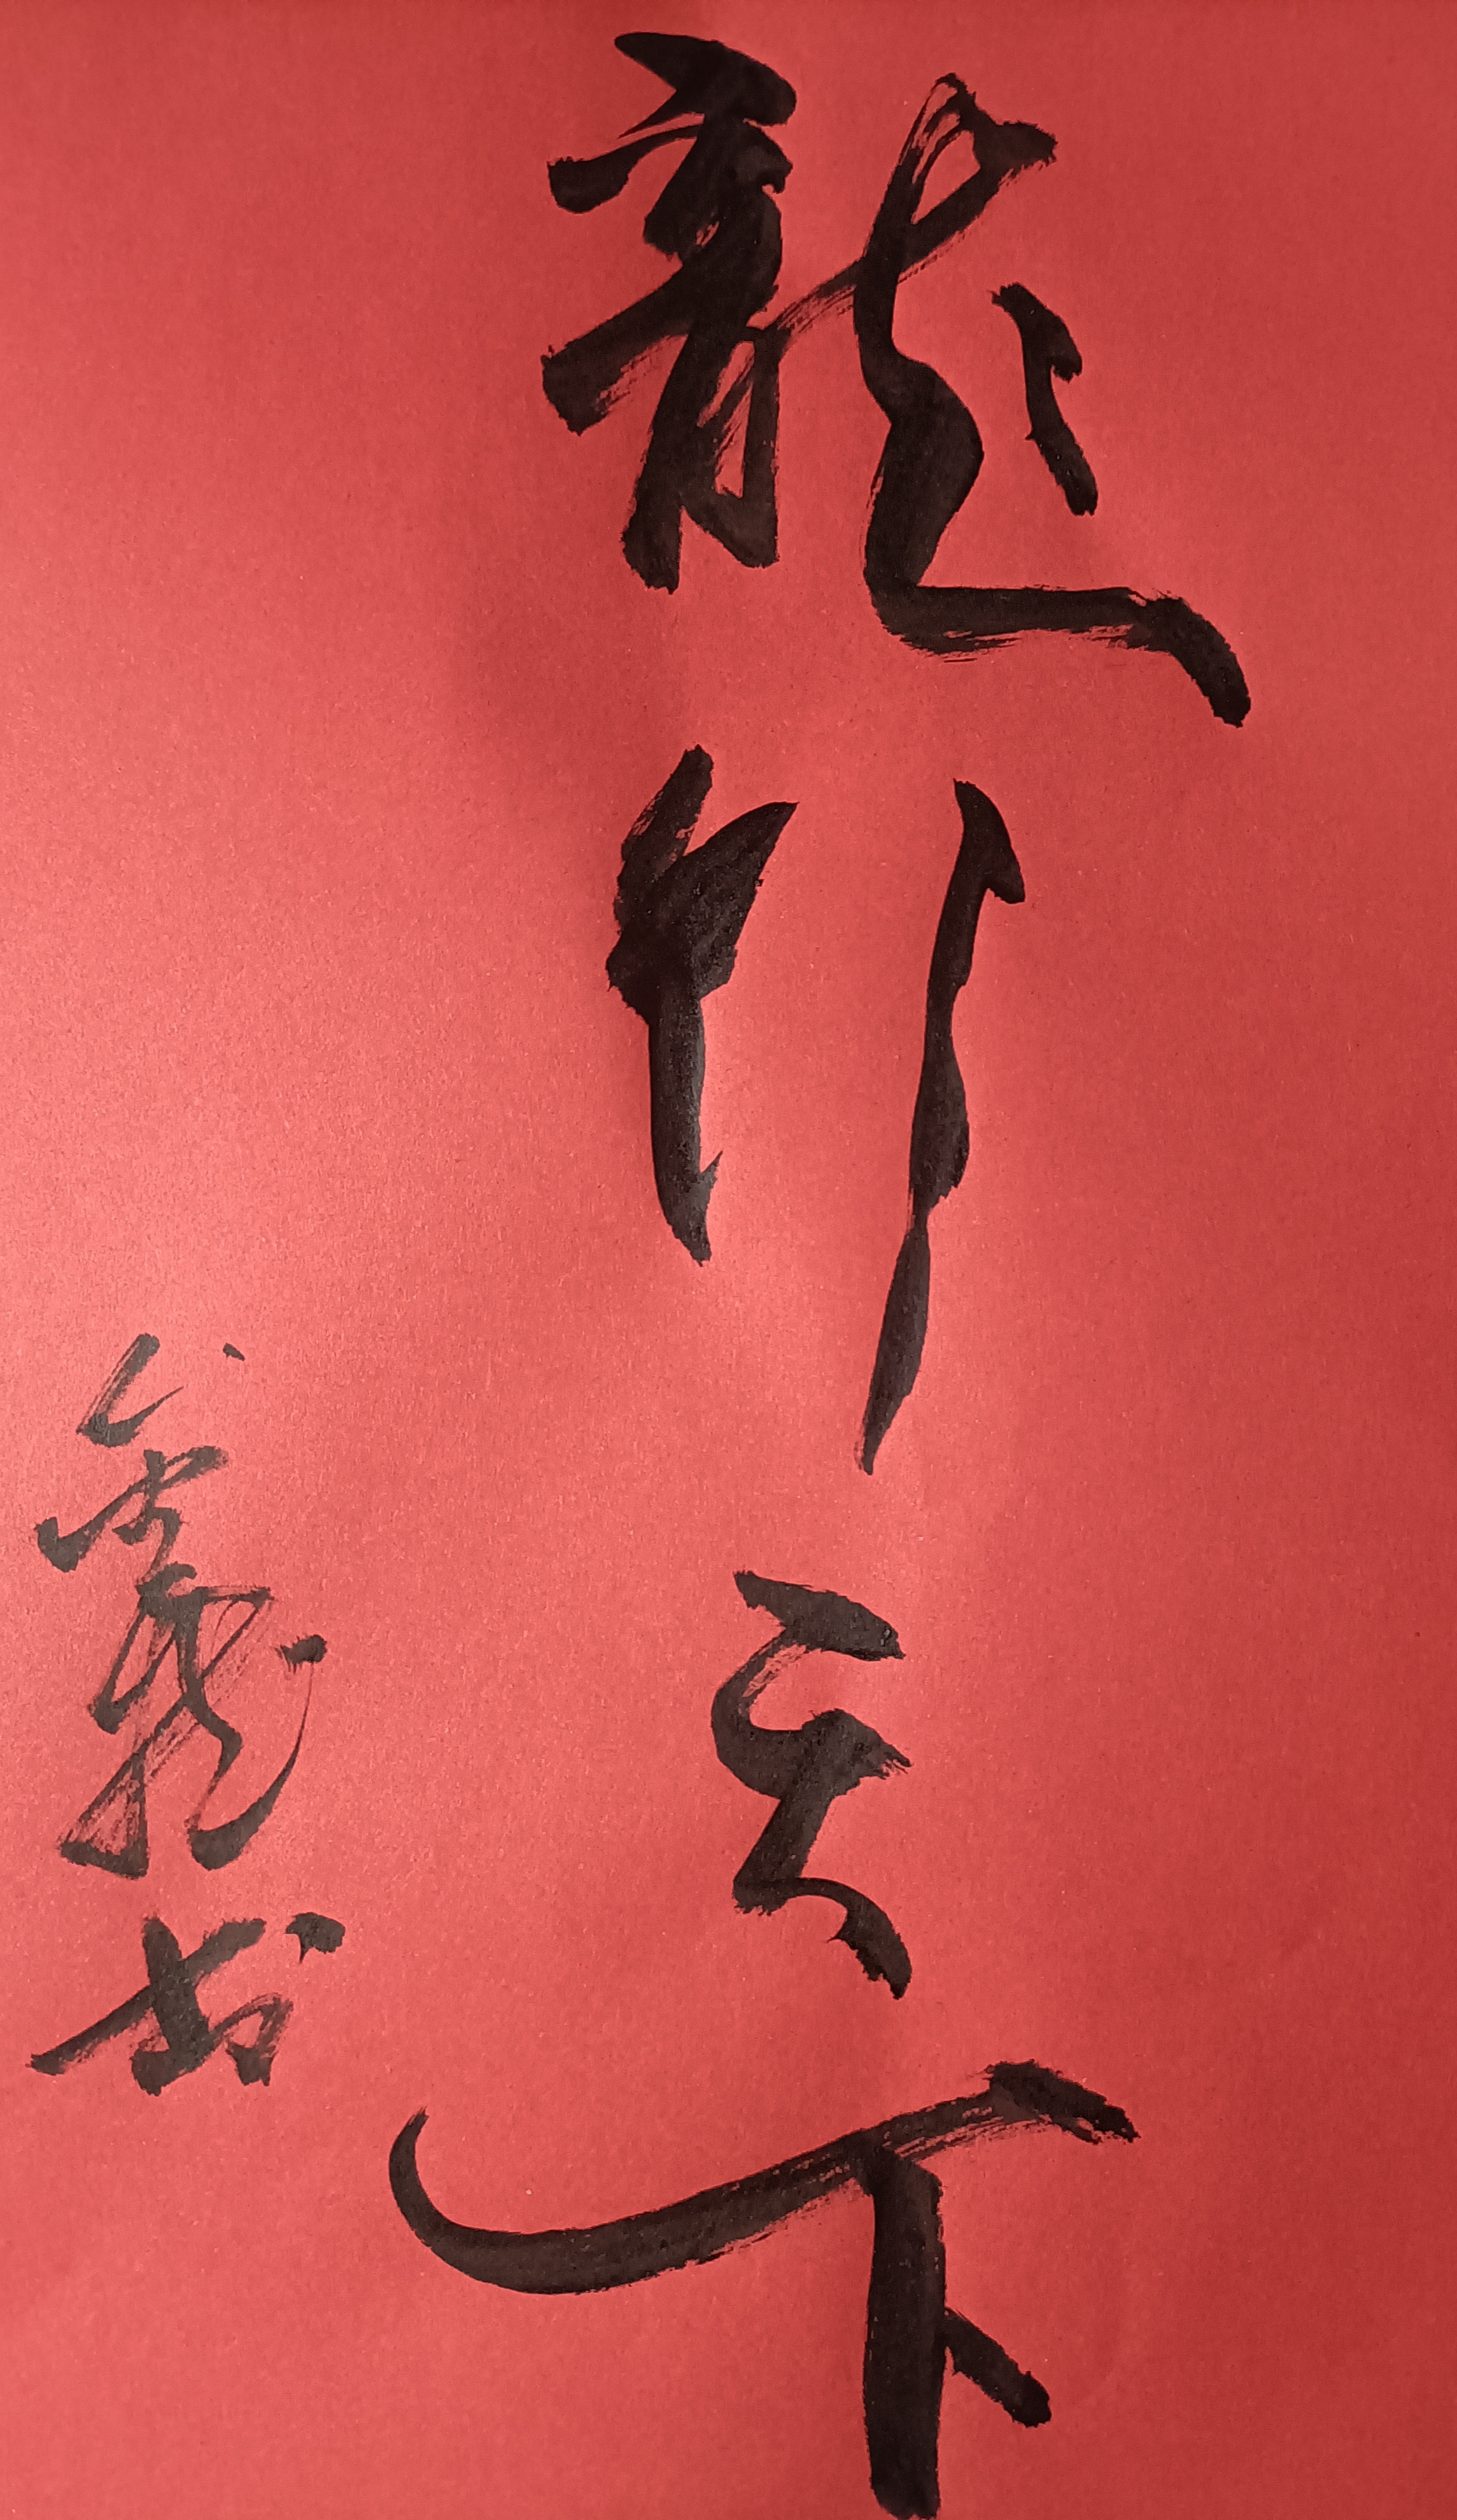 龍行天下
书